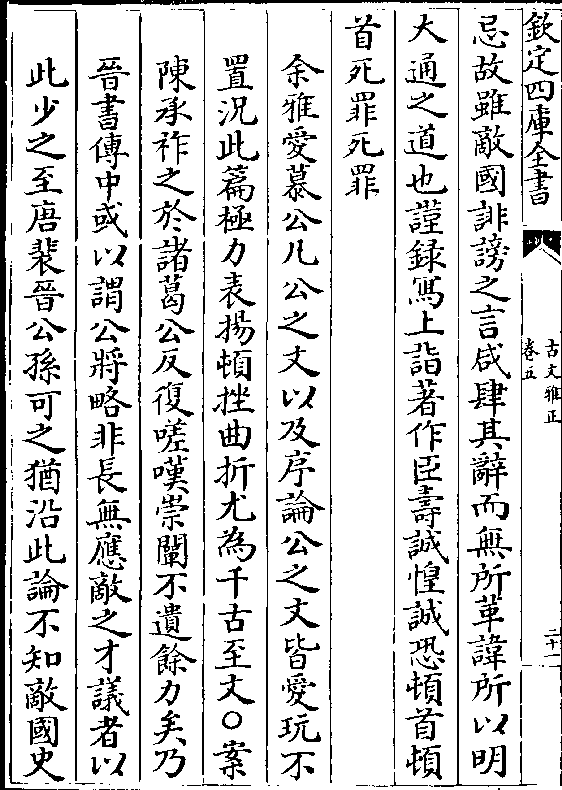 欽定四庫全書
古文雅正
卷五
二十一
忌故雖敵國誹謗之言咸肆其辭而無所革諱所以明
大通之道也謹録寫上詣著作臣壽誠惶誠恐頓首頓
首死罪死罪
余雅愛慕公凡公之文以及序論公之文皆愛玩不
置況此篇極力表揚頓挫曲折尤為千古至文○案
陳承祚之於諸葛公反復嗟嘆崇闡不遺餘力矣乃
晉書傳中或以謂公將略非長無應敵之才議者以
此少之至唐裴晉公孫可之猶沿此論不知敵國史